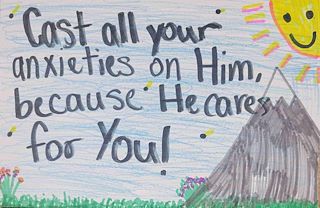 Cast all your
anxieties on Him,
because He cares
for You!